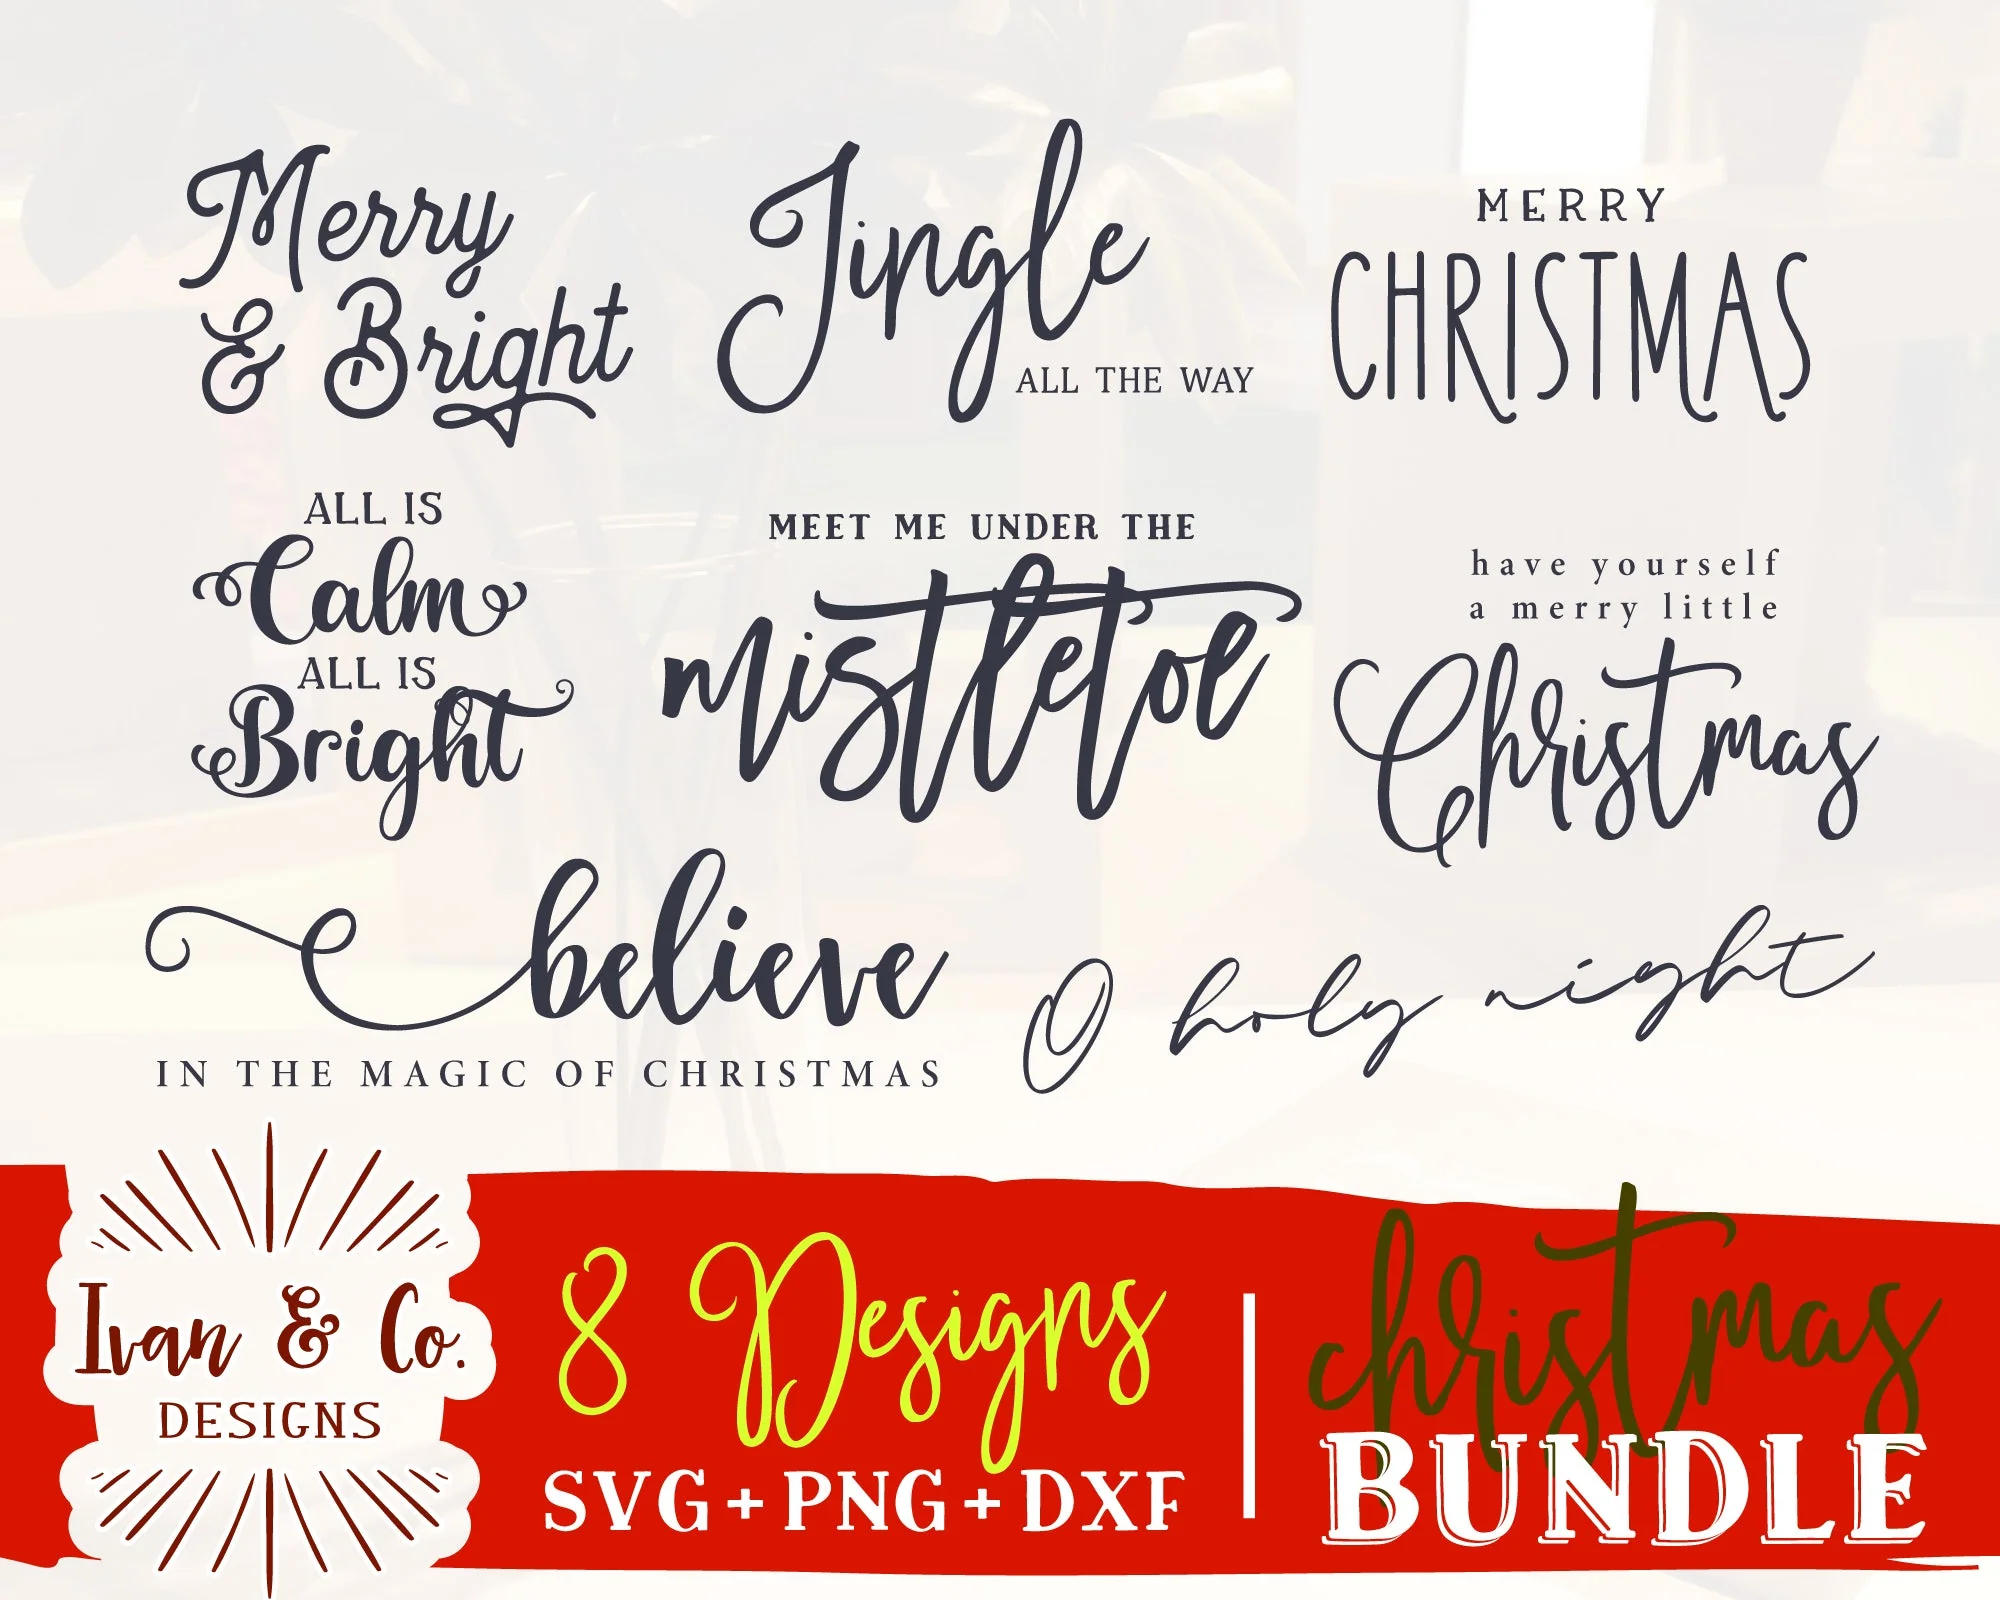 Merry
& Bright
Jingle
ALL THE WAY
MERRY
CHRISTMAS
ALL IS
Calm
ALL IS
Bright
MEET ME UNDER THE
mistletoe
have yourself
a merry little
Christmas
believe
IN THE MAGIC OF CHRISTMAS
O holy night
Ivan & Co.
DESIGNS
8 Designs
SVG+PNG+DXF
christmas
BUNDLE